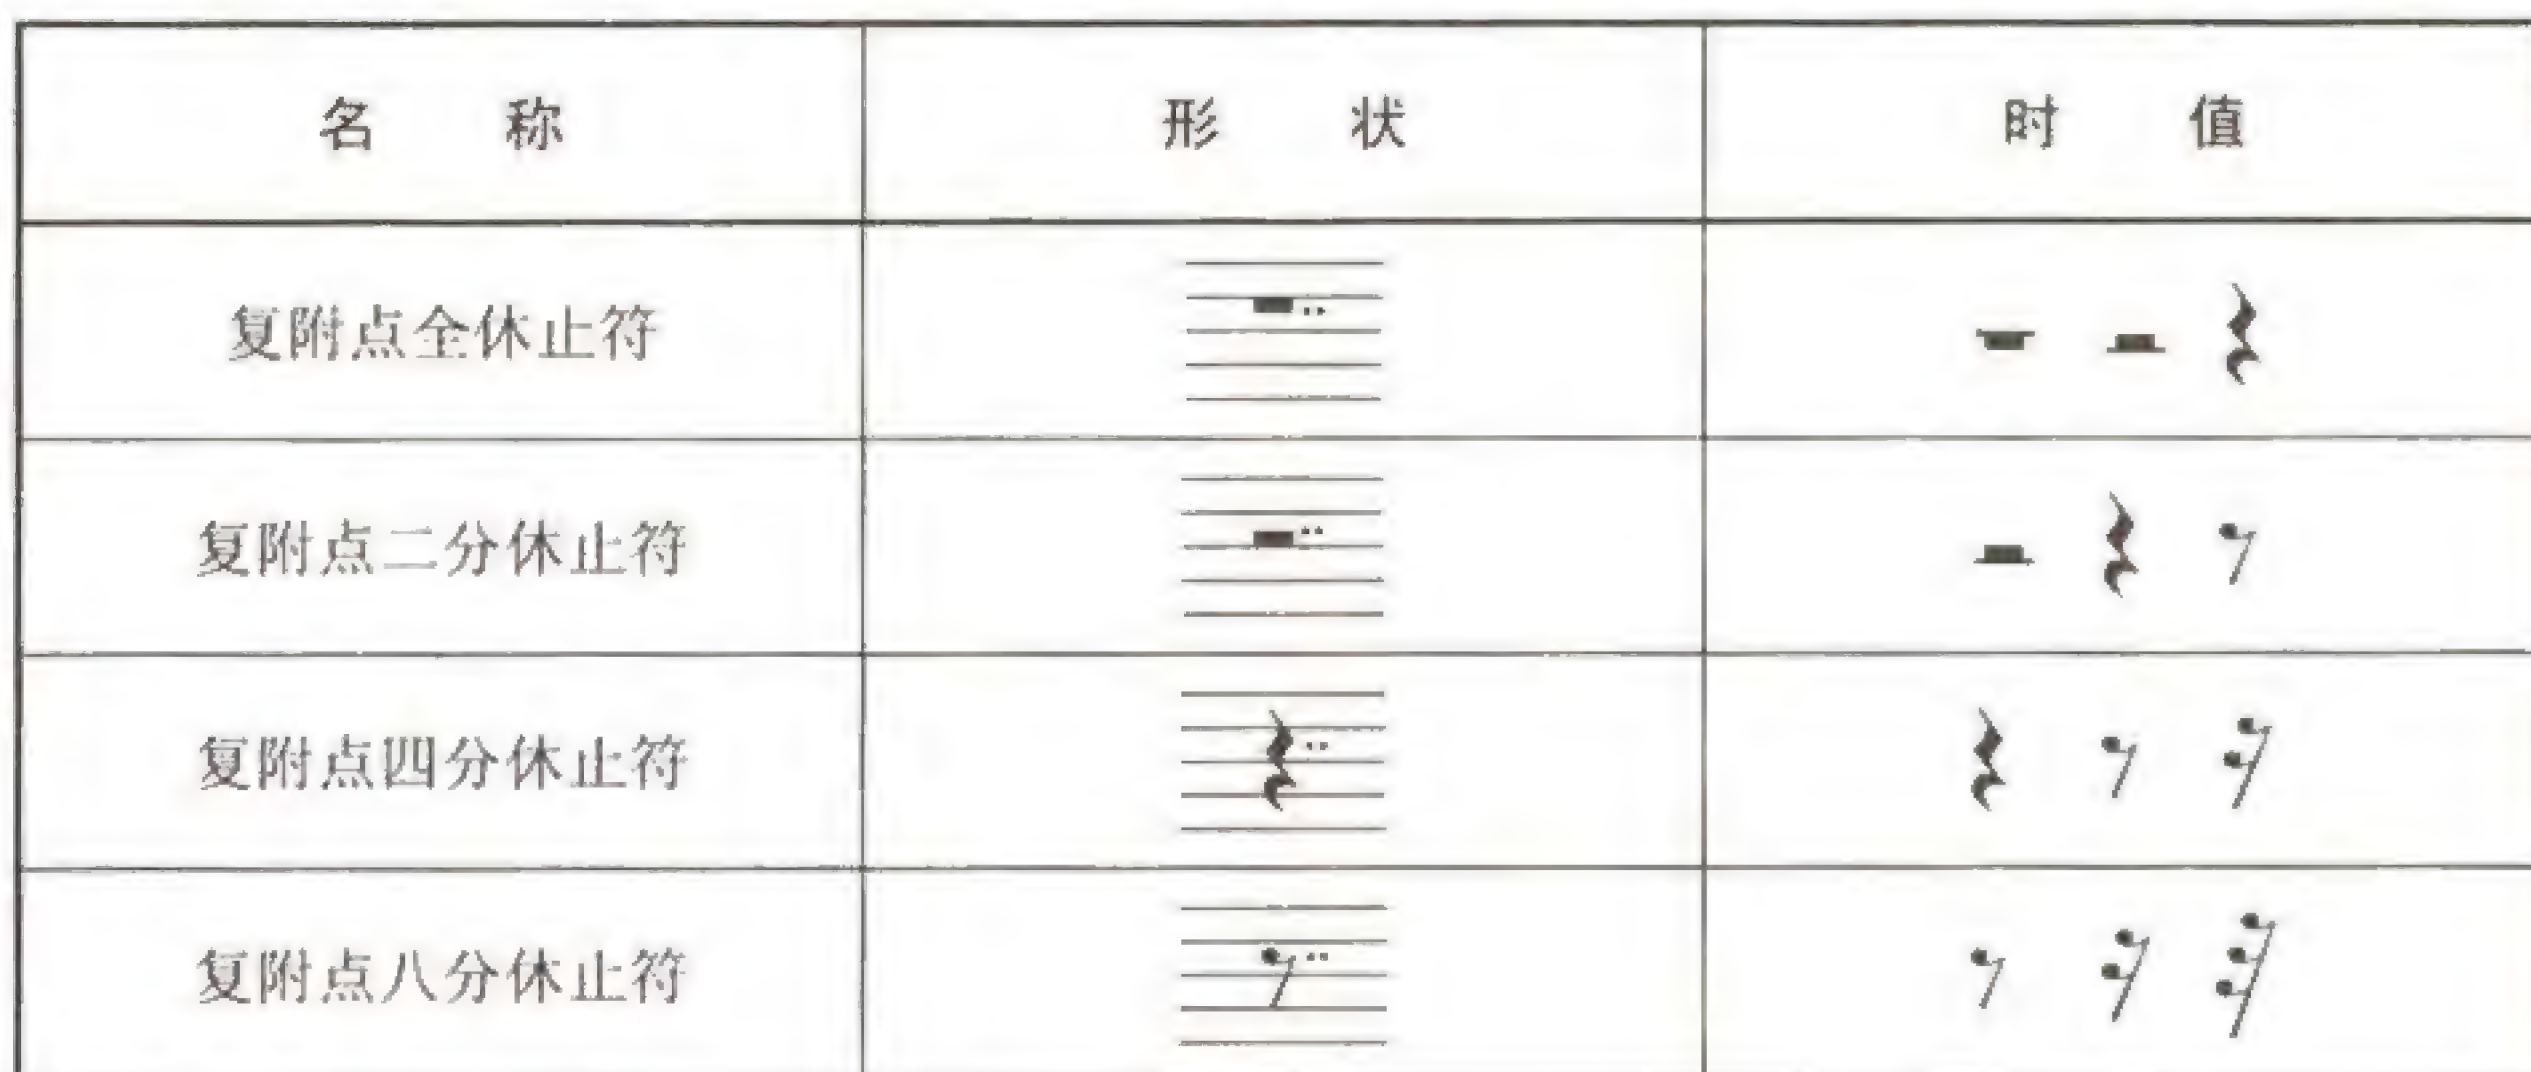 名 称 形 状 时 值
复附点全休止符
复附点二分休止符
复附点四分休止符
复附点八分休止符